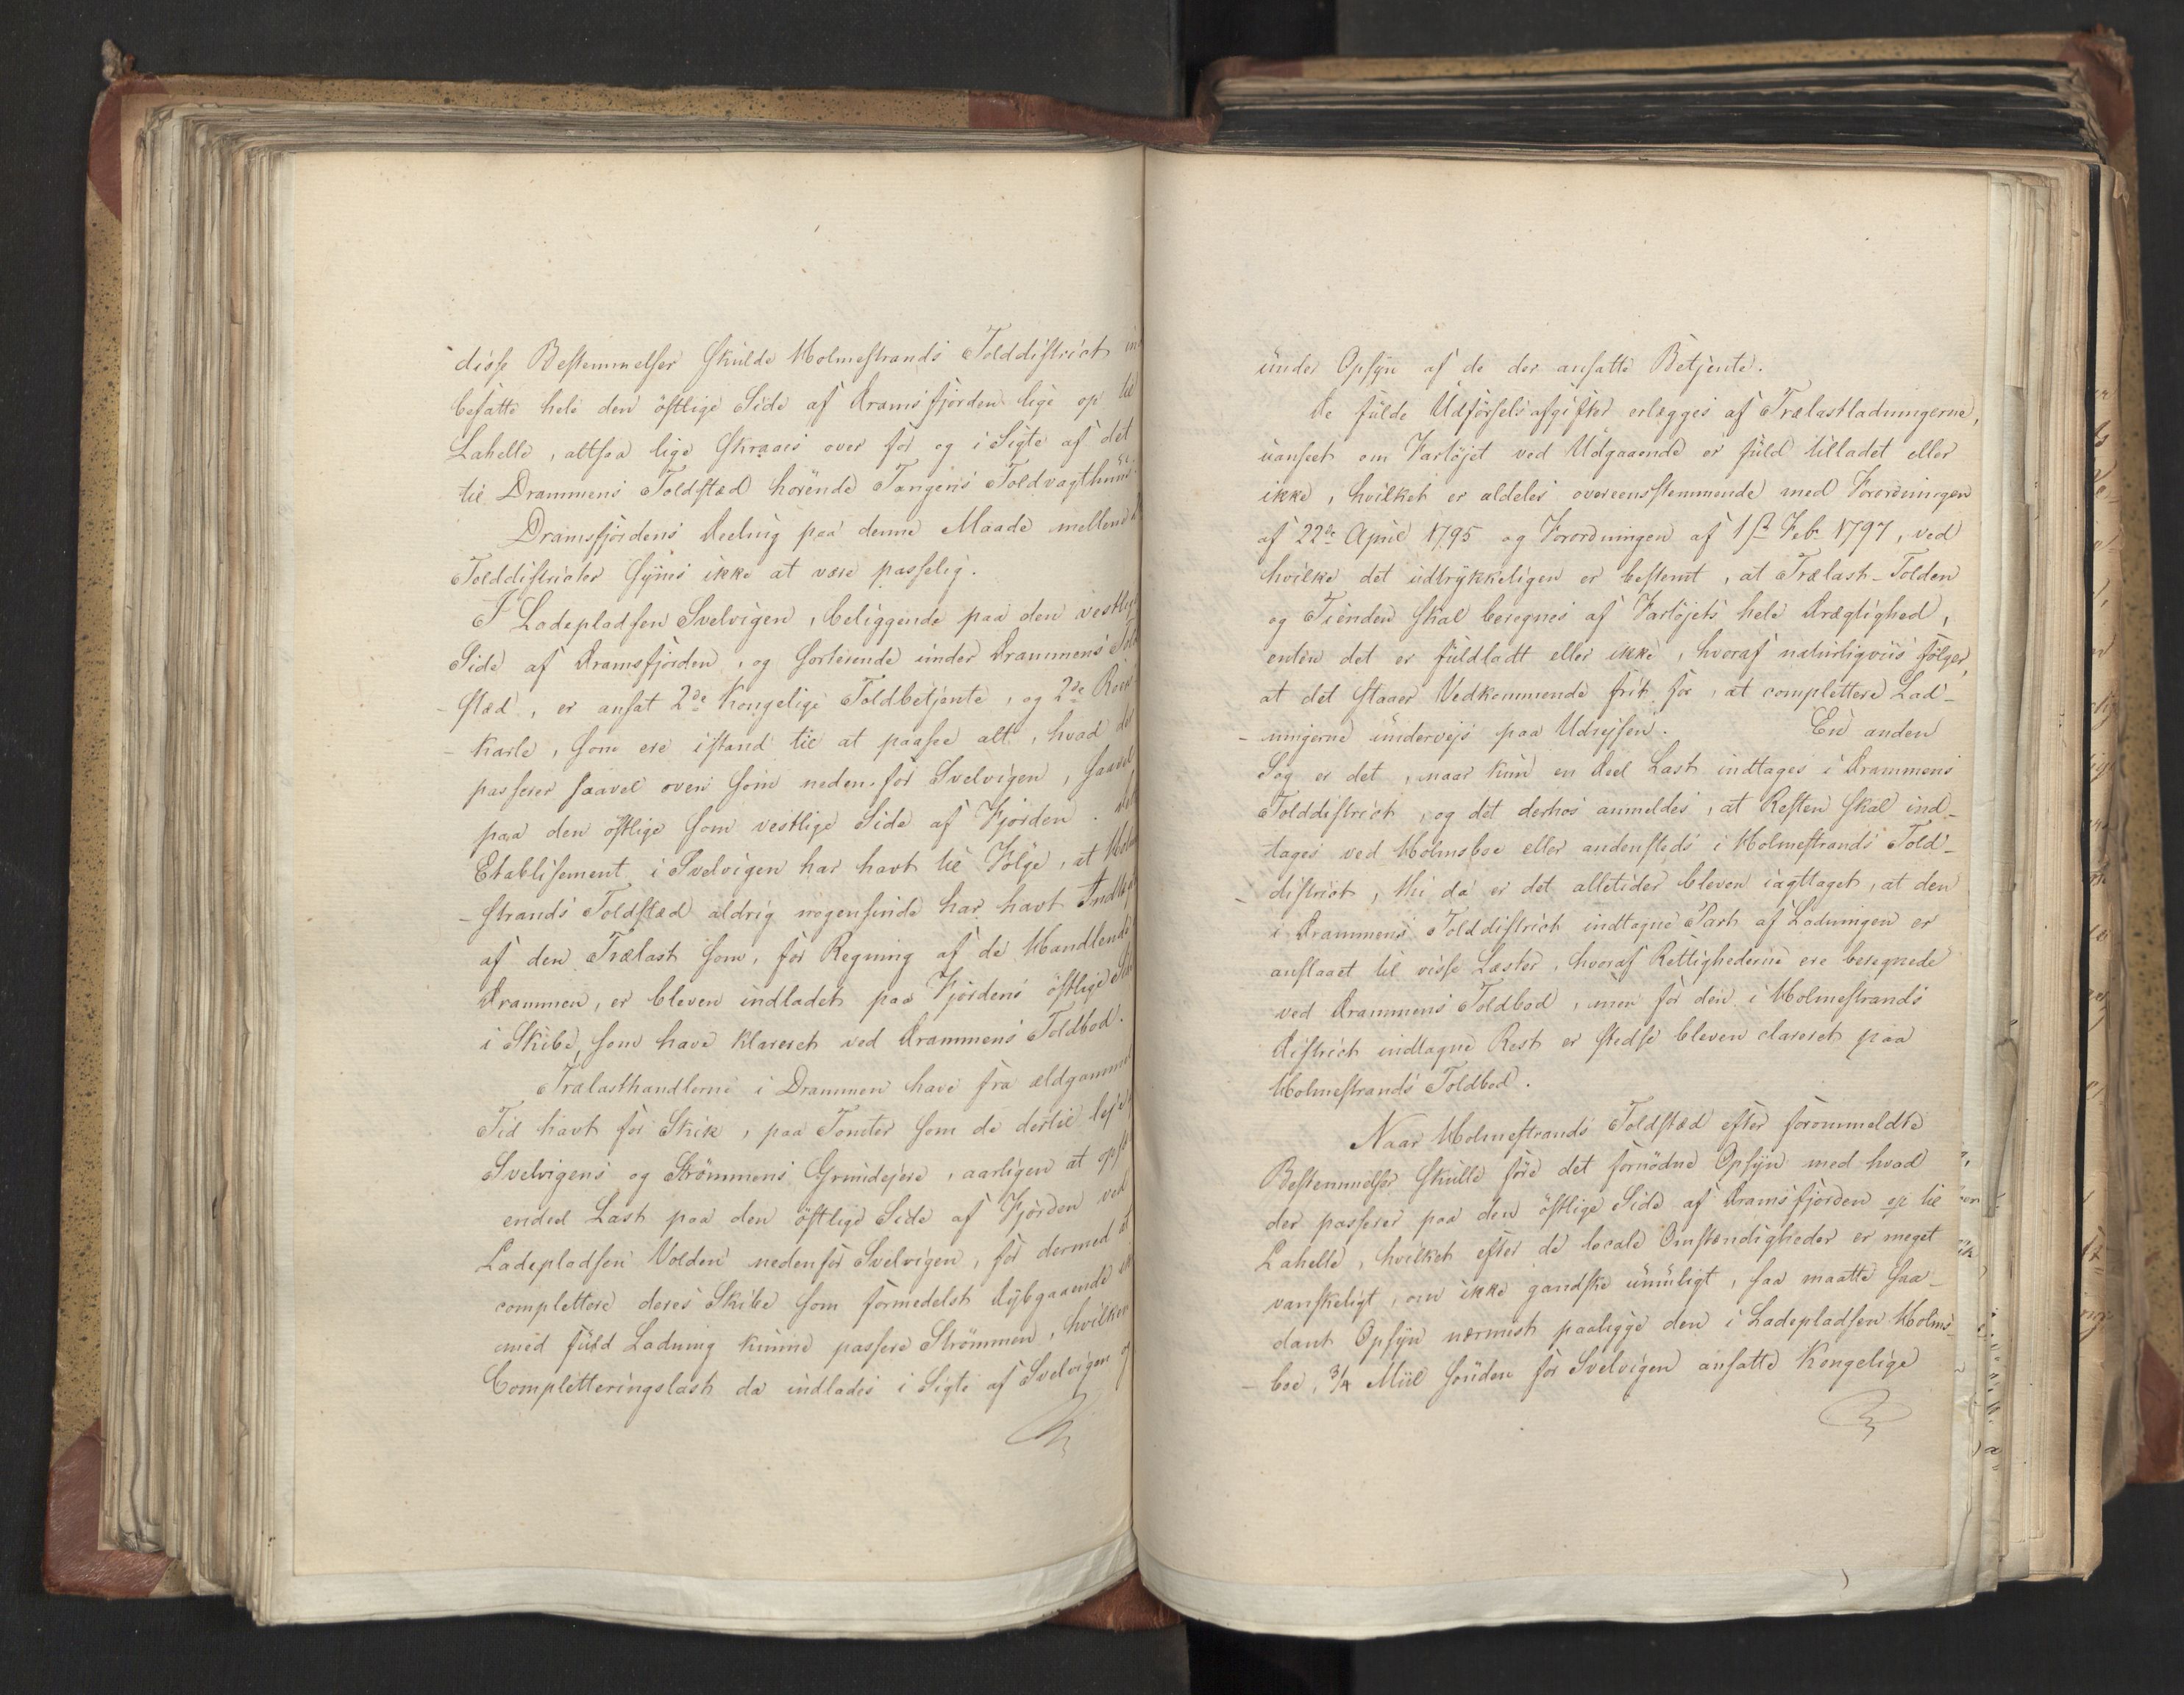 disse Bestemmelser skulde Holmestrands Tolddistrict
befatte hele den östlige Side af Dramsfjorden lige op til
Lahelle, altsaa lige skraas over for og i Sigte af det
til Drammens Toldsted hörende Tangens Toldvagthuus.
Dramsfjordens Deeling paa denne Maade mellem
Tolddistricter synes ikke at være passelig.
I Ladepladsen Svelvigen, beliggende paa den vestlige
Side af Dramsfjorden, og sorterende under Drammens Told
-sted, er ansat 2de Kongelige Toldbetjente, og 2de Roers
-karle, som ere istand til at paasee alt, hvad der
passerer saavel oven som neden-for Svelvigen, saavel
paa den östlige som vestlige Side af Fjorden.
Etablisement i Svelvigen har havt til Fölge, at Holme
-strands Toldsted aldrig nogensinde har havt Indtægt
af den Trælast som, for Regning af de Handlende
Drammen, er bleven indladet paa Fjordens östlige Side
i Skibe, som have klareret ved Drammens Toldbod.
Trælasthandlerne i Drammen have fra ældgammel
Tid havt for Skik, paa Tomter som de dertil leje
Svelvigens og Strömmens Grundejere, aarligen at
endeel Last paa den östlige Side af Fjorden ved
Ladepladsen Volden nedenfor Svelvigen, for dermed at
complettere deres Skibe som formedelst dybgaaende
med fuld Ladning kunne passere Strömmen, hvilken
Completteringslast da indlades i Sigte af Svelvigen og
under Opsyn af de der ansatte Betjente.
De fulde Udförselsafgifter erlægges af Trælastladningerne,
uanseet om Fartöjet ved Udgaaende er fuld tilladet eller
ikke, hvilket er aldeles overeensstemmende med Forordningen
af 22de April 1795 og Forordningen af 1ste Feb. 1797, ved
hvilke det udtrykkeligen er bestemt, at Trælast-Tolden
og Tienden skal beregnes af Fartöjets hele Drægtighed,
enten det er fuldladt eller ikke, hvoraf naturligviis fölger,
at det staaer Vedkommende frit for, at complettere Lad-
-ningerne undervejs paa Udrejsen. En anden
Sag er det, naar kun en Deel Last indtages i Drammens
Tolddistrict, og det derhos anmeldes, at Resten skal ind-
tages ved Holmsboe eller andensteds i Holmestrands Told-
-district, thi da er det alletider bleven iagttaget, at den
i Drammens Tolddistrict indtagne Part af Ladningen er
anslaaet til visse Læster, hvoraf Rettighederne ere beregnede
ved Drammens Toldbod, men for den i Holmestrands
District indtagne Rest er stedse bleven clareret paa
Holmestrands Toldbod.
Naar Holmestrands Toldsted efter forommeldte
Bestemmelser skulle före det fornödne Opsyn med hvad
der passerer paa den östlige Side af Dramsfjorden op til
Lahelle, hvilket efter de locale Omstændigheder er meget
vanskeligt, om ikke gandske umuligt, saa maatte saa-
dant Opsyn nærmest paaligge den i Ladepladsen Holms-
-boe, 3/4 Miil sönden for Svelvigen ansatte Kongelige